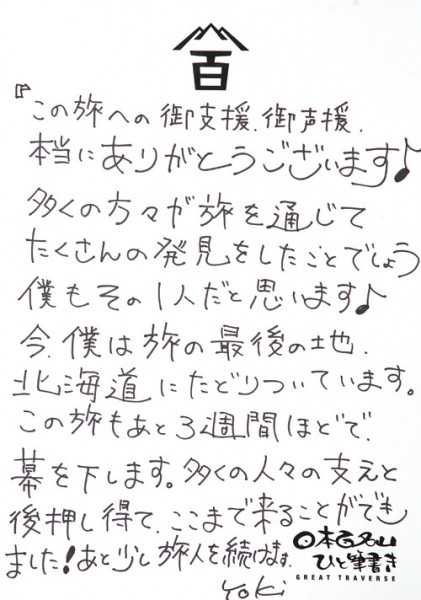 百
『この旅への御支援、御声援、
本当にありがとうございます♪
多くの方々が旅を通じて
たくさんの発見をしたことでしょう
僕もその1人だと思います♪
今、僕は旅の最後の地、
北海道にたどりついています。
この旅もあと3週間ほどで、
幕を下します。多くの人々の支えと
後押し得て、ここまで来ることができ
ました!あと少し旅人を続けます。
Yoki
日本百名山
ひと筆書き
GREAT TRAVERSE